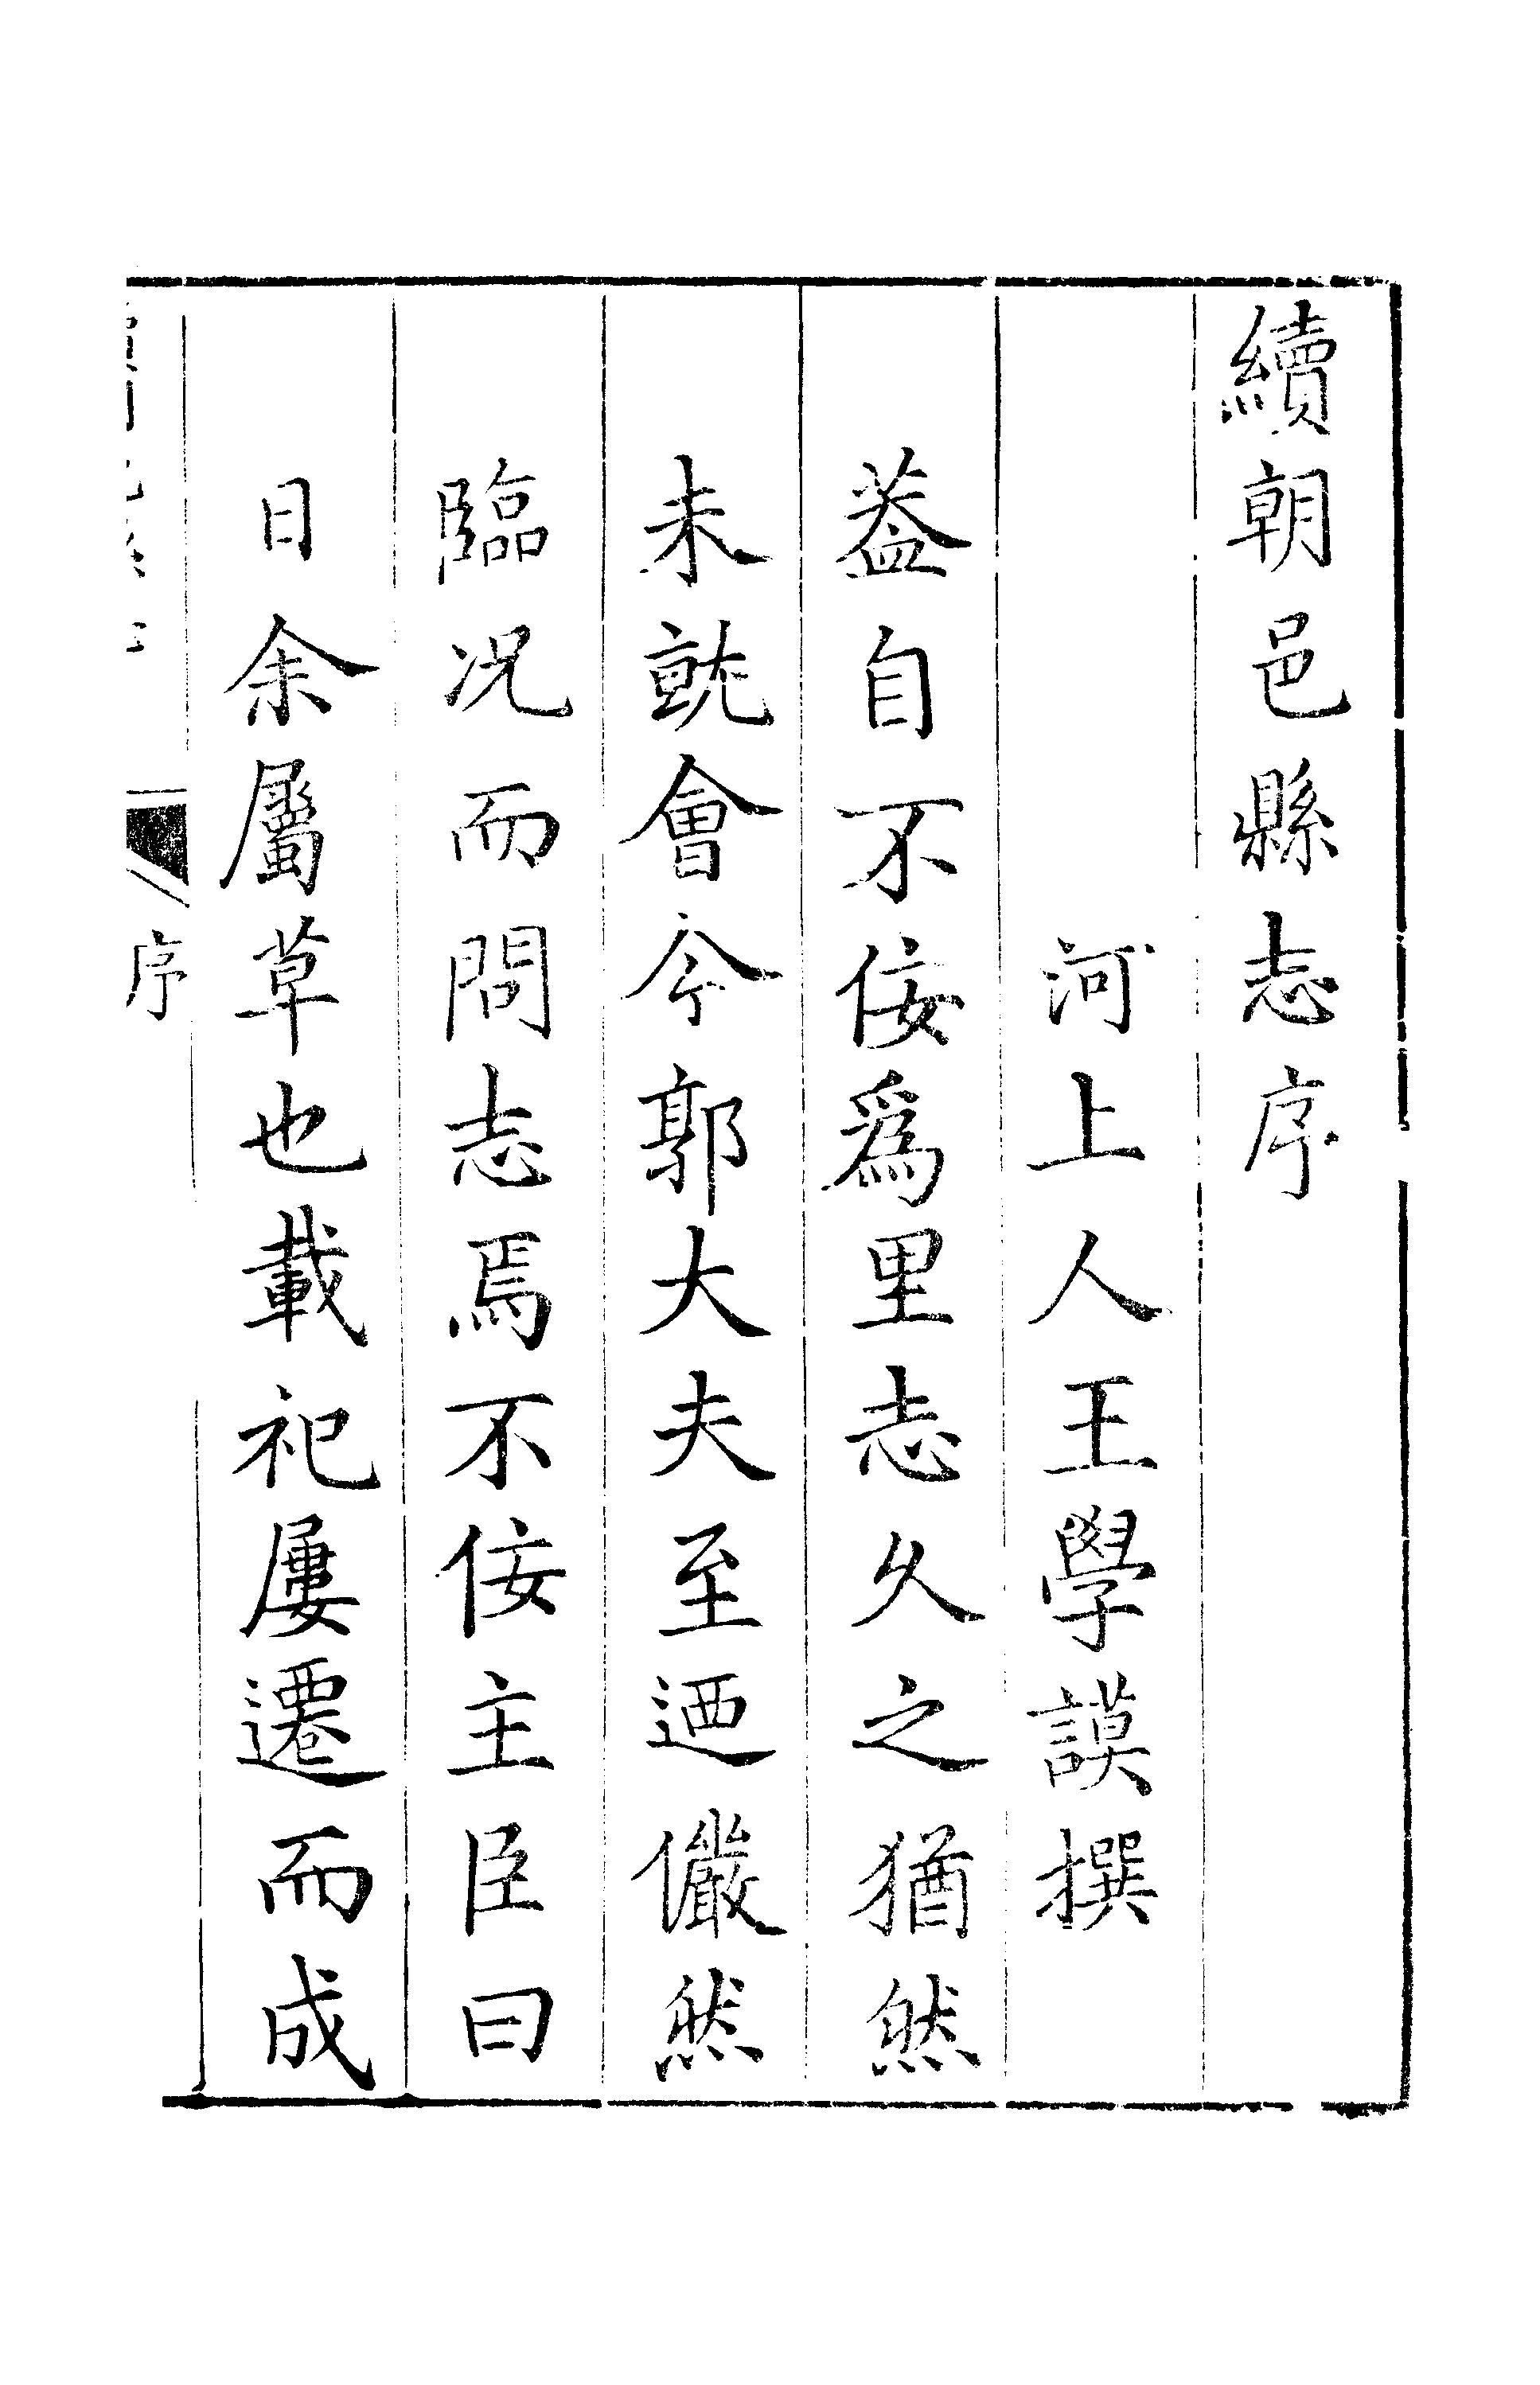 續朝邑縣志序
河上人王學謨撰
葢自不佞爲里志久之猶然
未就會今郭大夫至迺儼然
臨况而問志焉不佞主臣曰
日余屬草也載祀屢遷而成
序